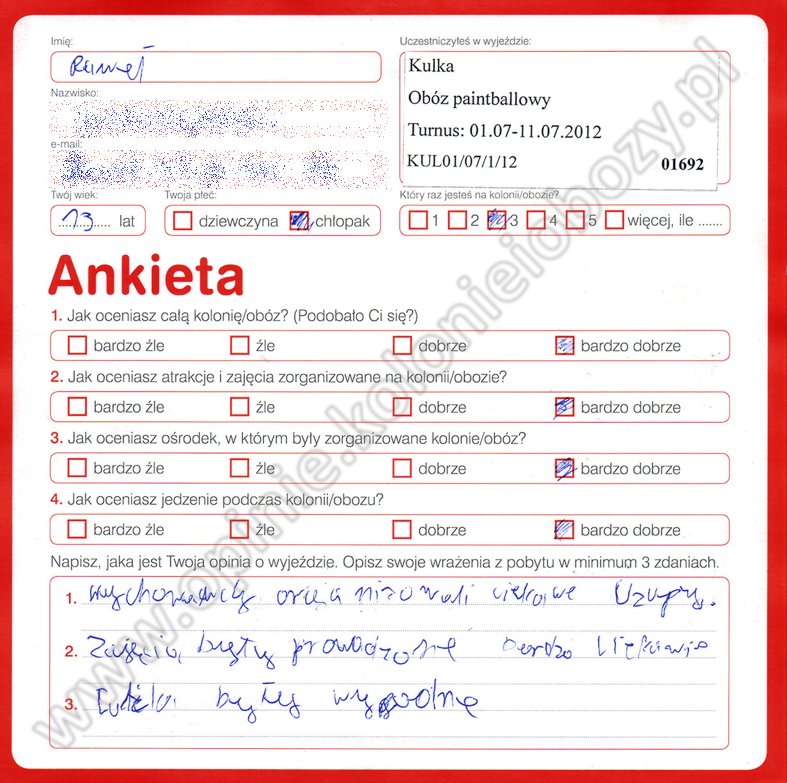 Imię:
Uczestniczyłeś w wyjeździe:
Kulka
Obóz paintballowy
Turnus: 01.07-11.07.2012
KUL01/07/1/12 01692
Nazwisko:
e-mail:
Twój wiek:
Twoja płeć:
Który raz jesteś na kolonii/obozie?
13 lat
dziewczyna chłopak
1 2 3 4 5 więcej, ile .......
Ankieta
1. Jak oceniasz całą kolonię/obóz? (Podobało Ci się?)
bardzo źle źle dobrze bardzo dobrze
2. Jak oceniasz atrakcje i zajęcia zorganizowane na kolonii/obozie?
bardzo źle źle dobrze bardzo dobrze
3. Jak oceniasz ośrodek, w którym były zorganizowane kolonie/obóz?
bardzo źle źle dobrze bardzo dobrze
4. Jak oceniasz jedzenie podczas kolonii/obozu?
bardzo źle źle dobrze bardzo dobrze
Napisz, jaka jest Twoja opinia o wyjeździe. Opisz swoje wrażenia z pobytu w minimum 3 zdaniach.
1. wychowawcy
2. Zajęcia były prowadzone bardzo ciekawie
3. były wygodne
www.opinie.kolonieiobozy.pl